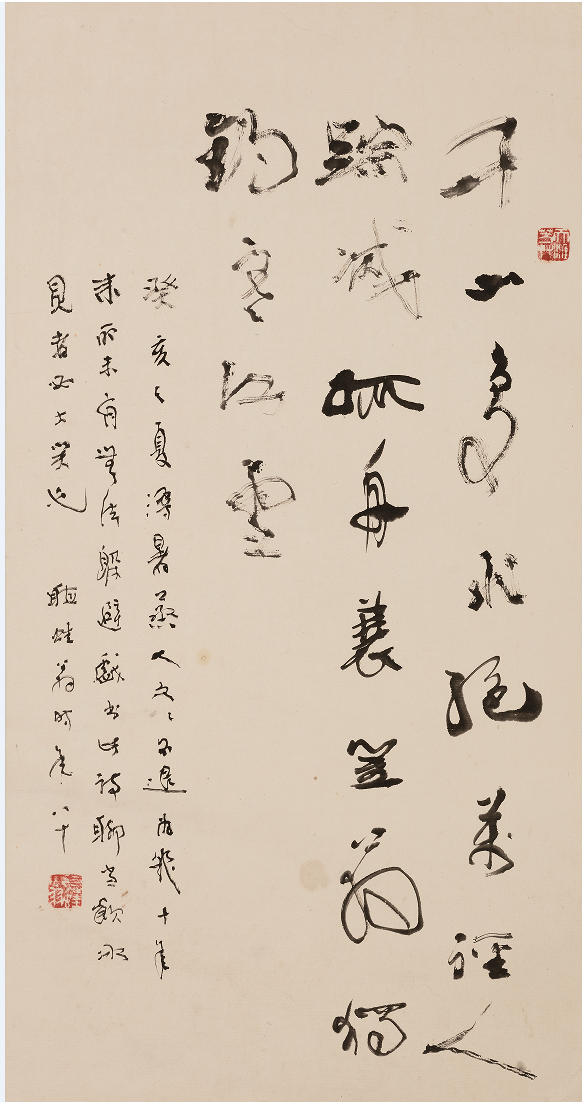 千山鳥飛絕萬徑人
蹤滅孤舟蓑笠翁獨
釣寒江雪
癸亥之夏溽暑蒸人久久不退為幾十年
來所未有無法躲避戲書此詩聊當飲冰
見者必大笑也 聽蛙翁時年八十